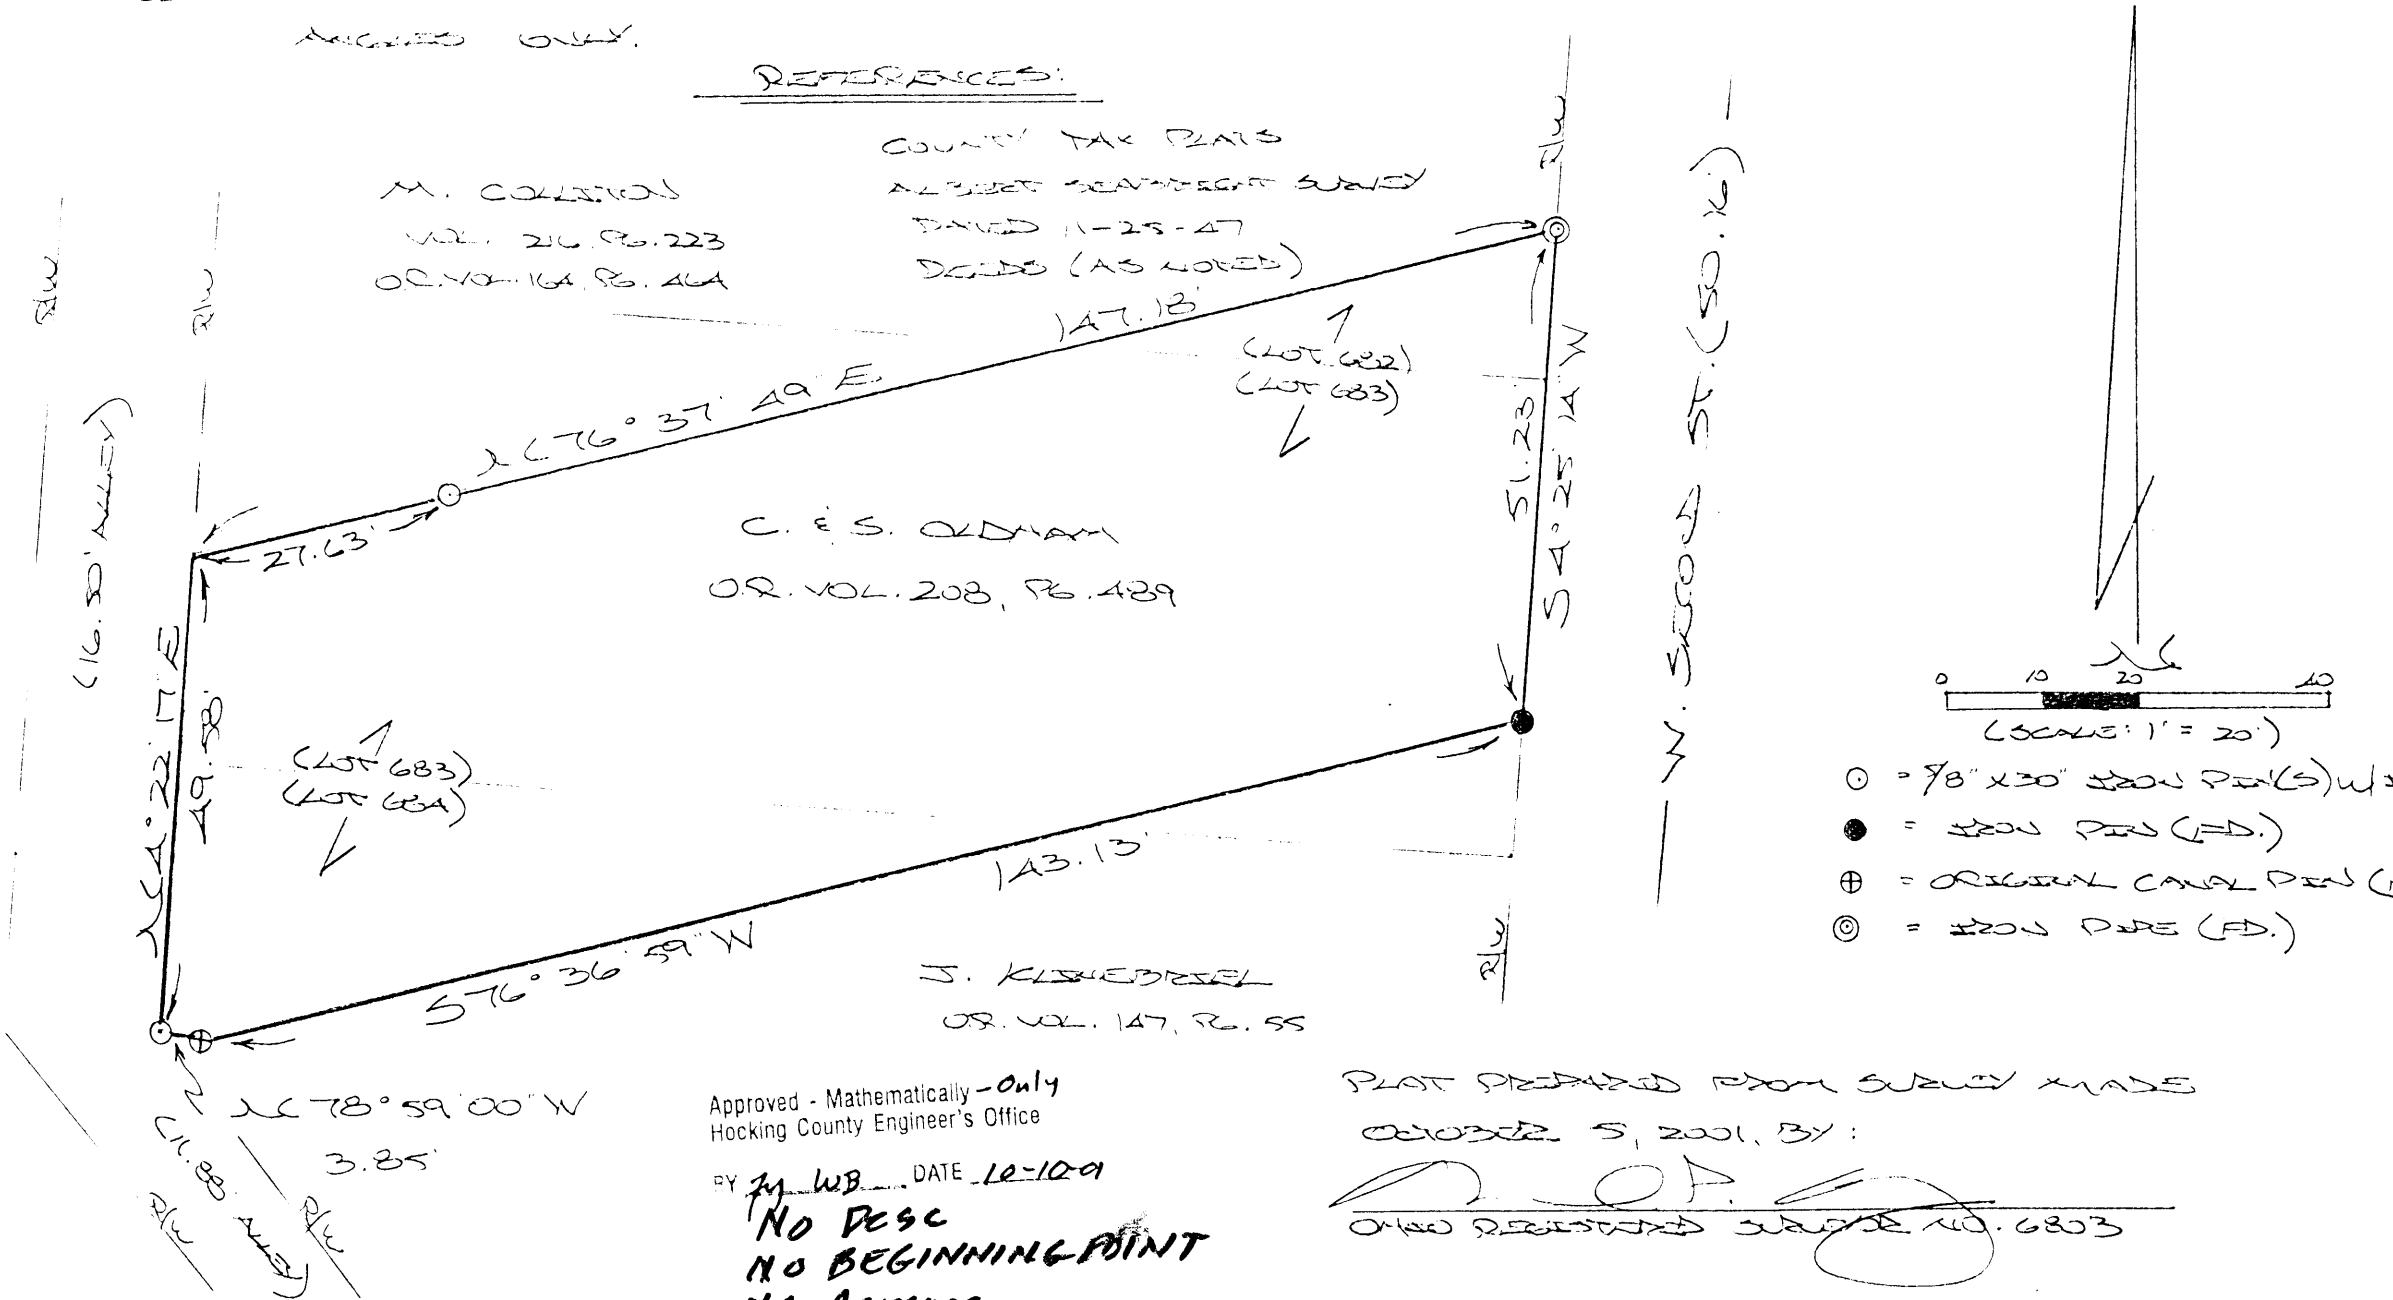 ANGLES ONLY.
REFERENCES:
COUNTY TAX PLATS
ALBERT SEABRIGHT SURVEY
DATED 11-25-47
DEEDS (AS NOTED)
M. COLLITON
VOL. 216, PG. 223
O.R. VOL. 164, PG. 464
R/W
R/W
R/W
(16.50' ALLEY)
147.18'
N 76° 37' 49" E
27.63'
(LOT 682)
(LOT 683)
51.23'
S 4° 25' 14" W
W. SECOND ST. (50. R)
C. & S. OLDHAM
O.R. VOL. 208, PG. 489
N 4° 22' 17" E
49.58'
(LOT 683)
(LOT 684)
143.13'
S 76° 36' 59" W
J. KLINEBRIEL
O.R. VOL. 147, PG. 55
R/W
N 78° 59' 00" W
3.85'
(11.88' ALLEY)
R/W
R/W
N
0 10 20 40
(SCALE: 1" = 20')
= 5/8" X 30" IRON PIN(S) W/
= IRON PIN (FD.)
= ORIGINAL CANAL PIN (
= IRON PIPE (FD.)
Approved - Mathematically - Only
Hocking County Engineer's Office
BY WB DATE 10-10-01
NO DESC
NO BEGINNING POINT
PLAT PREPARED FROM SURVEY MADE
OCTOBER 5, 2001, BY:
OHIO REGISTERED SURVEYOR NO. 6803